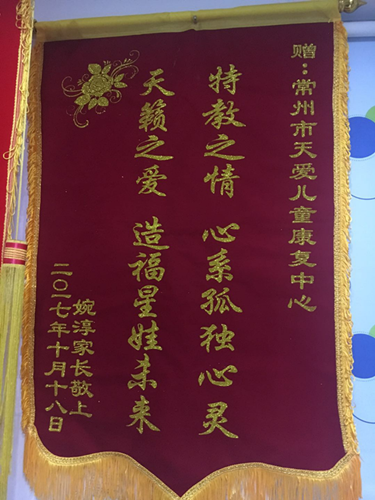 赠：常州市天爱儿童康复中心
特教之情 心系孤独心灵
天籁之爱 造福星娃未来
婉淳家长敬上
二〇一七年十月十八日